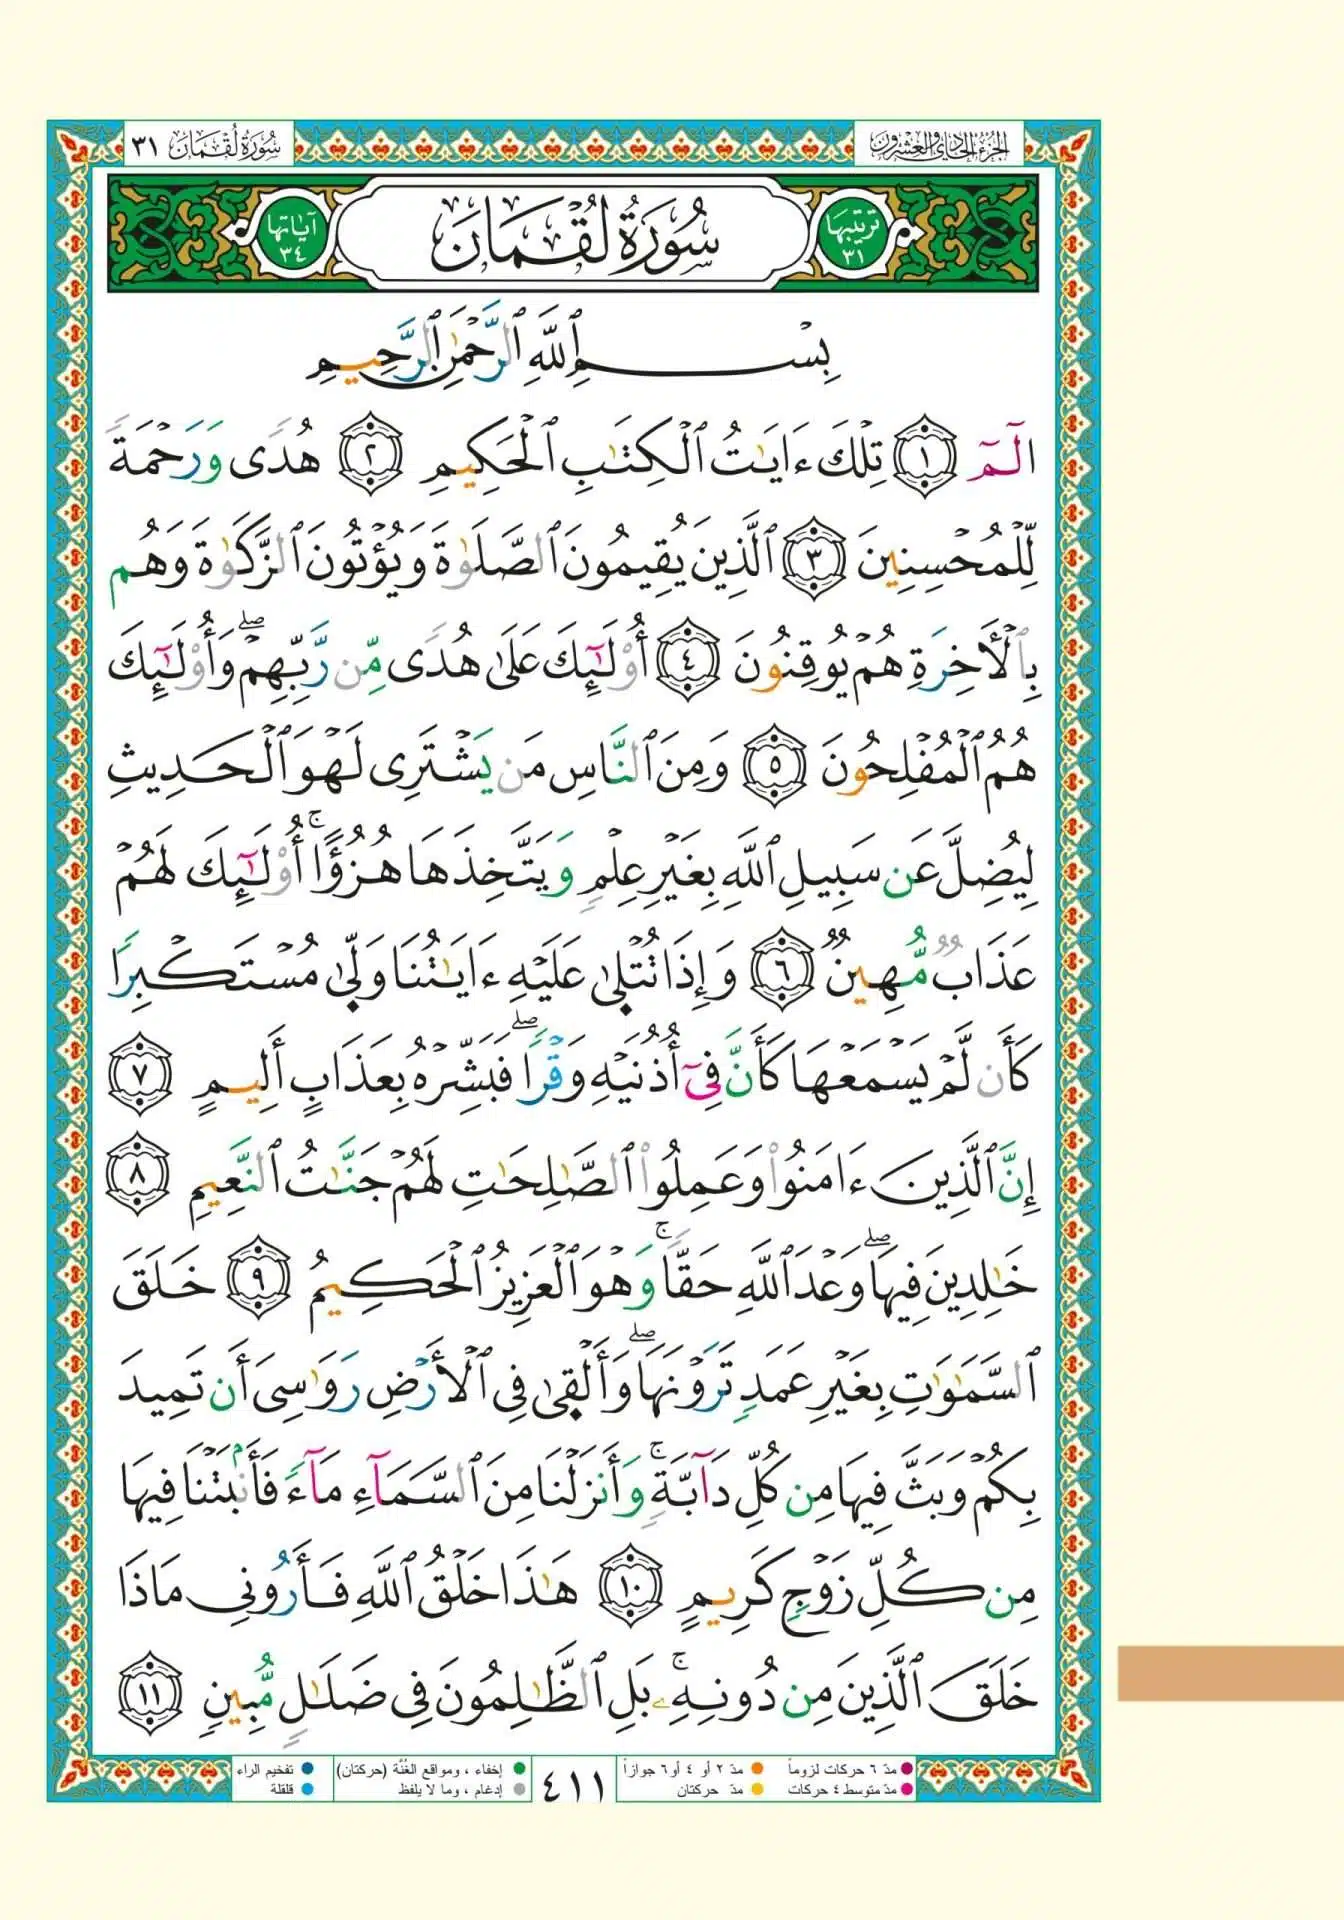 الجزء الحادي والعشرون
سورة لقمان ٣١
ترتيبها ٣١
سُورَةُ لُقْمَان
آياتها ٣٤
بِسْمِ ٱللَّهِ ٱلرَّحْمَٰنِ ٱلرَّحِيمِ
الٓمٓ ١ تِلْكَ ءَايَٰتُ ٱلْكِتَٰبِ ٱلْحَكِيمِ ٢ هُدًى وَرَحْمَةً
لِّلْمُحْسِنِينَ ٣ ٱلَّذِينَ يُقِيمُونَ ٱلصَّلَوٰةَ وَيُؤْتُونَ ٱلزَّكَوٰةَ وَهُم
بِٱلْأَخِرَةِ هُمْ يُوقِنُونَ ٤ أُوْلَٰٓئِكَ عَلَىٰ هُدًى مِّن رَّبِّهِمْ ۖ وَأُوْلَٰٓئِكَ
هُمُ ٱلْمُفْلِحُونَ ٥ وَمِنَ ٱلنَّاسِ مَن يَشْتَرِى لَهْوَ ٱلْحَدِيثِ
لِيُضِلَّ عَن سَبِيلِ ٱللَّهِ بِغَيْرِ عِلْمٍ وَيَتَّخِذَهَا هُزُؤًا ۚ أُوْلَٰٓئِكَ لَهُمْ
عَذَابٌ مُّهِينٌ ٦ وَإِذَا تُتْلَىٰ عَلَيْهِ ءَايَٰتُنَا وَلَّىٰ مُسْتَكْبِرًا
كَأَن لَّمْ يَسْمَعْهَا كَأَنَّ فِىٓ أُذُنَيْهِ وَقْرًا ۖ فَبَشِّرْهُ بِعَذَابٍ أَلِيمٍ ٧
إِنَّ ٱلَّذِينَ ءَامَنُوا۟ وَعَمِلُوا۟ ٱلصَّٰلِحَٰتِ لَهُمْ جَنَّٰتُ ٱلنَّعِيمِ ٨
خَٰلِدِينَ فِيهَا ۖ وَعْدَ ٱللَّهِ حَقًّا ۚ وَهُوَ ٱلْعَزِيزُ ٱلْحَكِيمُ ٩ خَلَقَ
ٱلسَّمَٰوَٰتِ بِغَيْرِ عَمَدٍ تَرَوْنَهَا ۖ وَأَلْقَىٰ فِى ٱلْأَرْضِ رَوَٰسِىَ أَن تَمِيدَ
بِكُمْ وَبَثَّ فِيهَا مِن كُلِّ دَآبَّةٍ ۚ وَأَنزَلْنَا مِنَ ٱلسَّمَآءِ مَآءً فَأَنۢبَتْنَا فِيهَا
مِن كُلِّ زَوْجٍ كَرِيمٍ ١٠ هَٰذَا خَلْقُ ٱللَّهِ فَأَرُونِى مَاذَا
خَلَقَ ٱلَّذِينَ مِن دُونِهِۦ ۚ بَلِ ٱلظَّٰلِمُونَ فِى ضَلَٰلٍ مُّبِينٍ ١١
مدّ ٦ حركات لزوماً مدّ ٢ أو ٤ أو ٦ جوازاً
مدّ متوسط ٤ حركات مدّ حركتان
٤١١
إخفاء ، ومواقع الغُنَّة (حركتان) تفخيم الراء
إدغام ، وما لا يلفظ قلقلة